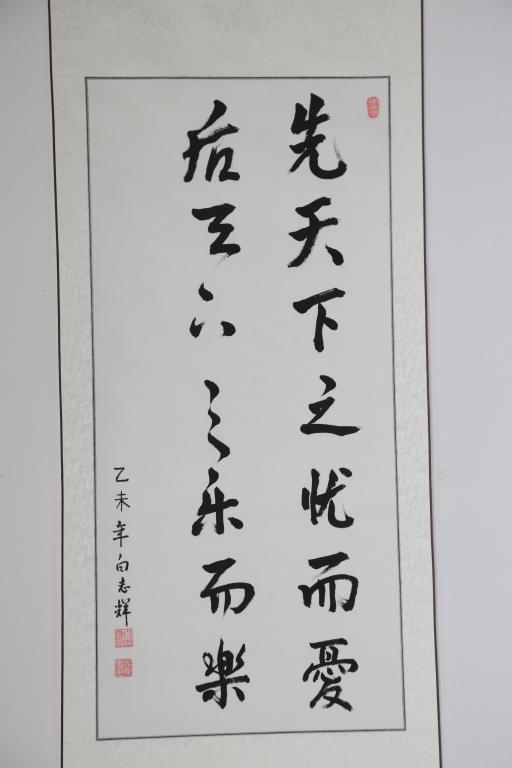 先天下之忧而憂
后天下之乐而樂
乙未年白志輝